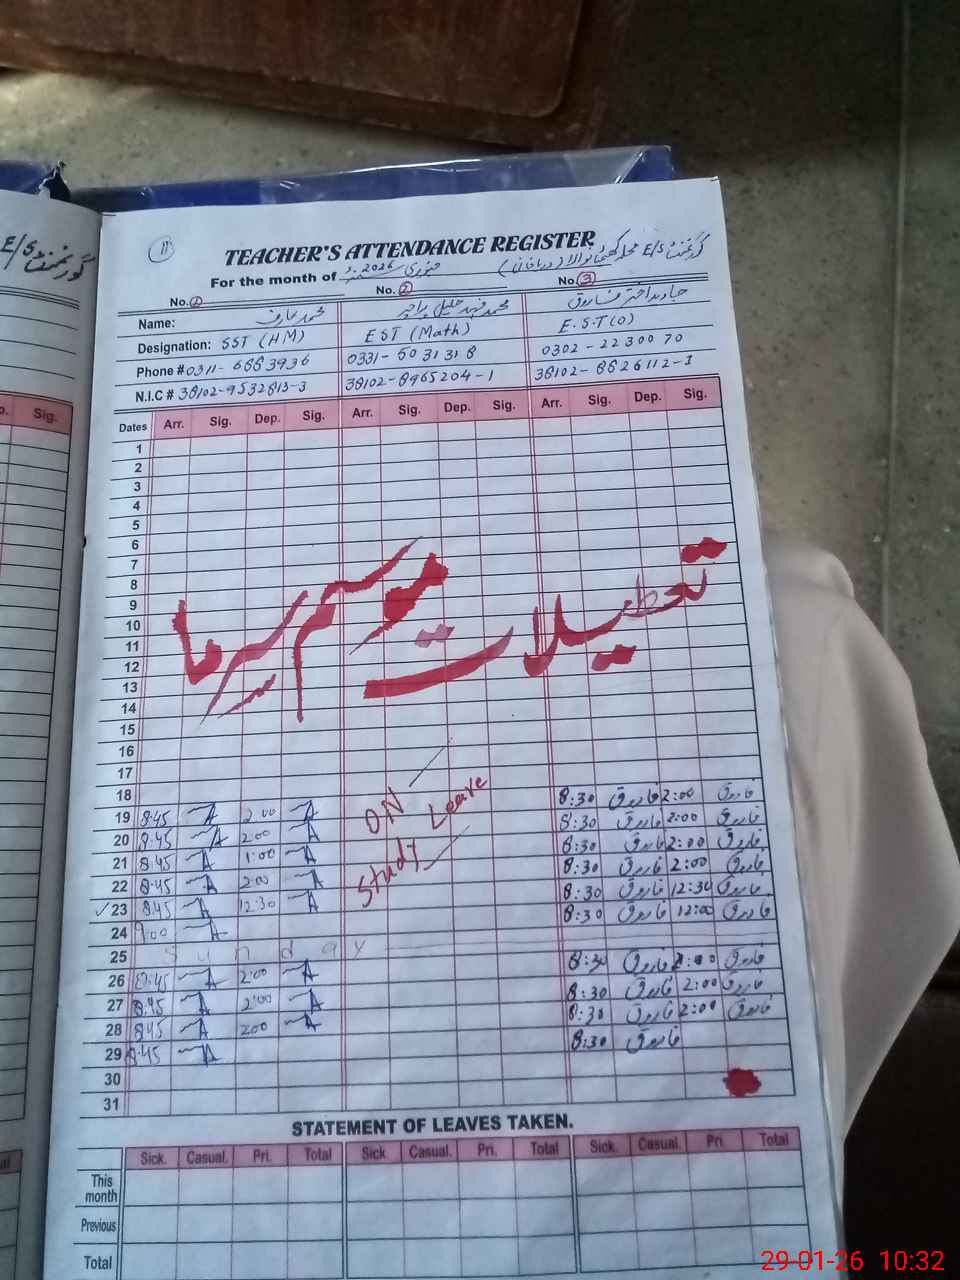 E/S گورنمنٹ
11
TEACHER'S ATTENDANCE REGISTER
گورنمنٹ E/S
For the month of جنوری 2026
No. 1 No. 2 No. 3
Name: محمد عارف محمد فہد جلیل پراچہ جاوید اختر فاروق
Designation: SST (HM) EST (Math) E.S.T(O)
Phone # 0311-6883936 0331-5031318 0302-2230070
N.I.C # 38102-9532813-3 38102-8965204-1 38102-8826112-1
Dates Arr. Sig. Dep. Sig. Arr. Sig. Dep. Sig. Arr. Sig. Dep. Sig.
Sig.
1
2
3
4
5
6
7
8
9
تعطیلات موسم سرما
10
11
12
13
14
15
16
17
18
19 8:45 A 2:00 A 8:30 فاروق 2:00 فاروق
20 8:45 A 2:00 A ON 8:30 فاروق 2:00 فاروق
21 8:45 A 1:00 A Study Leave 8:30 فاروق 2:00 فاروق
22 8:45 A 2:00 A 8:30 فاروق 2:00 فاروق
✓23 8:45 A 12:30 A 8:30 فاروق 12:30 فاروق
24 9:00 A 8:30 فاروق 12:00 فاروق
25 Sunday
26 8:45 A 2:00 A 8:30 فاروق 2:00 فاروق
27 8:45 A 2:00 A 8:30 فاروق 2:00 فاروق
28 8:45 A 2:00 A 8:30 فاروق 2:00 فاروق
29 8:45 A 8:30 فاروق
30
31
STATEMENT OF LEAVES TAKEN.
Sick. Casual. Pri. Total Sick. Casual. Pri. Total Sick. Casual. Pri. Total
This month
Previous
Total
29-01-26 10:32